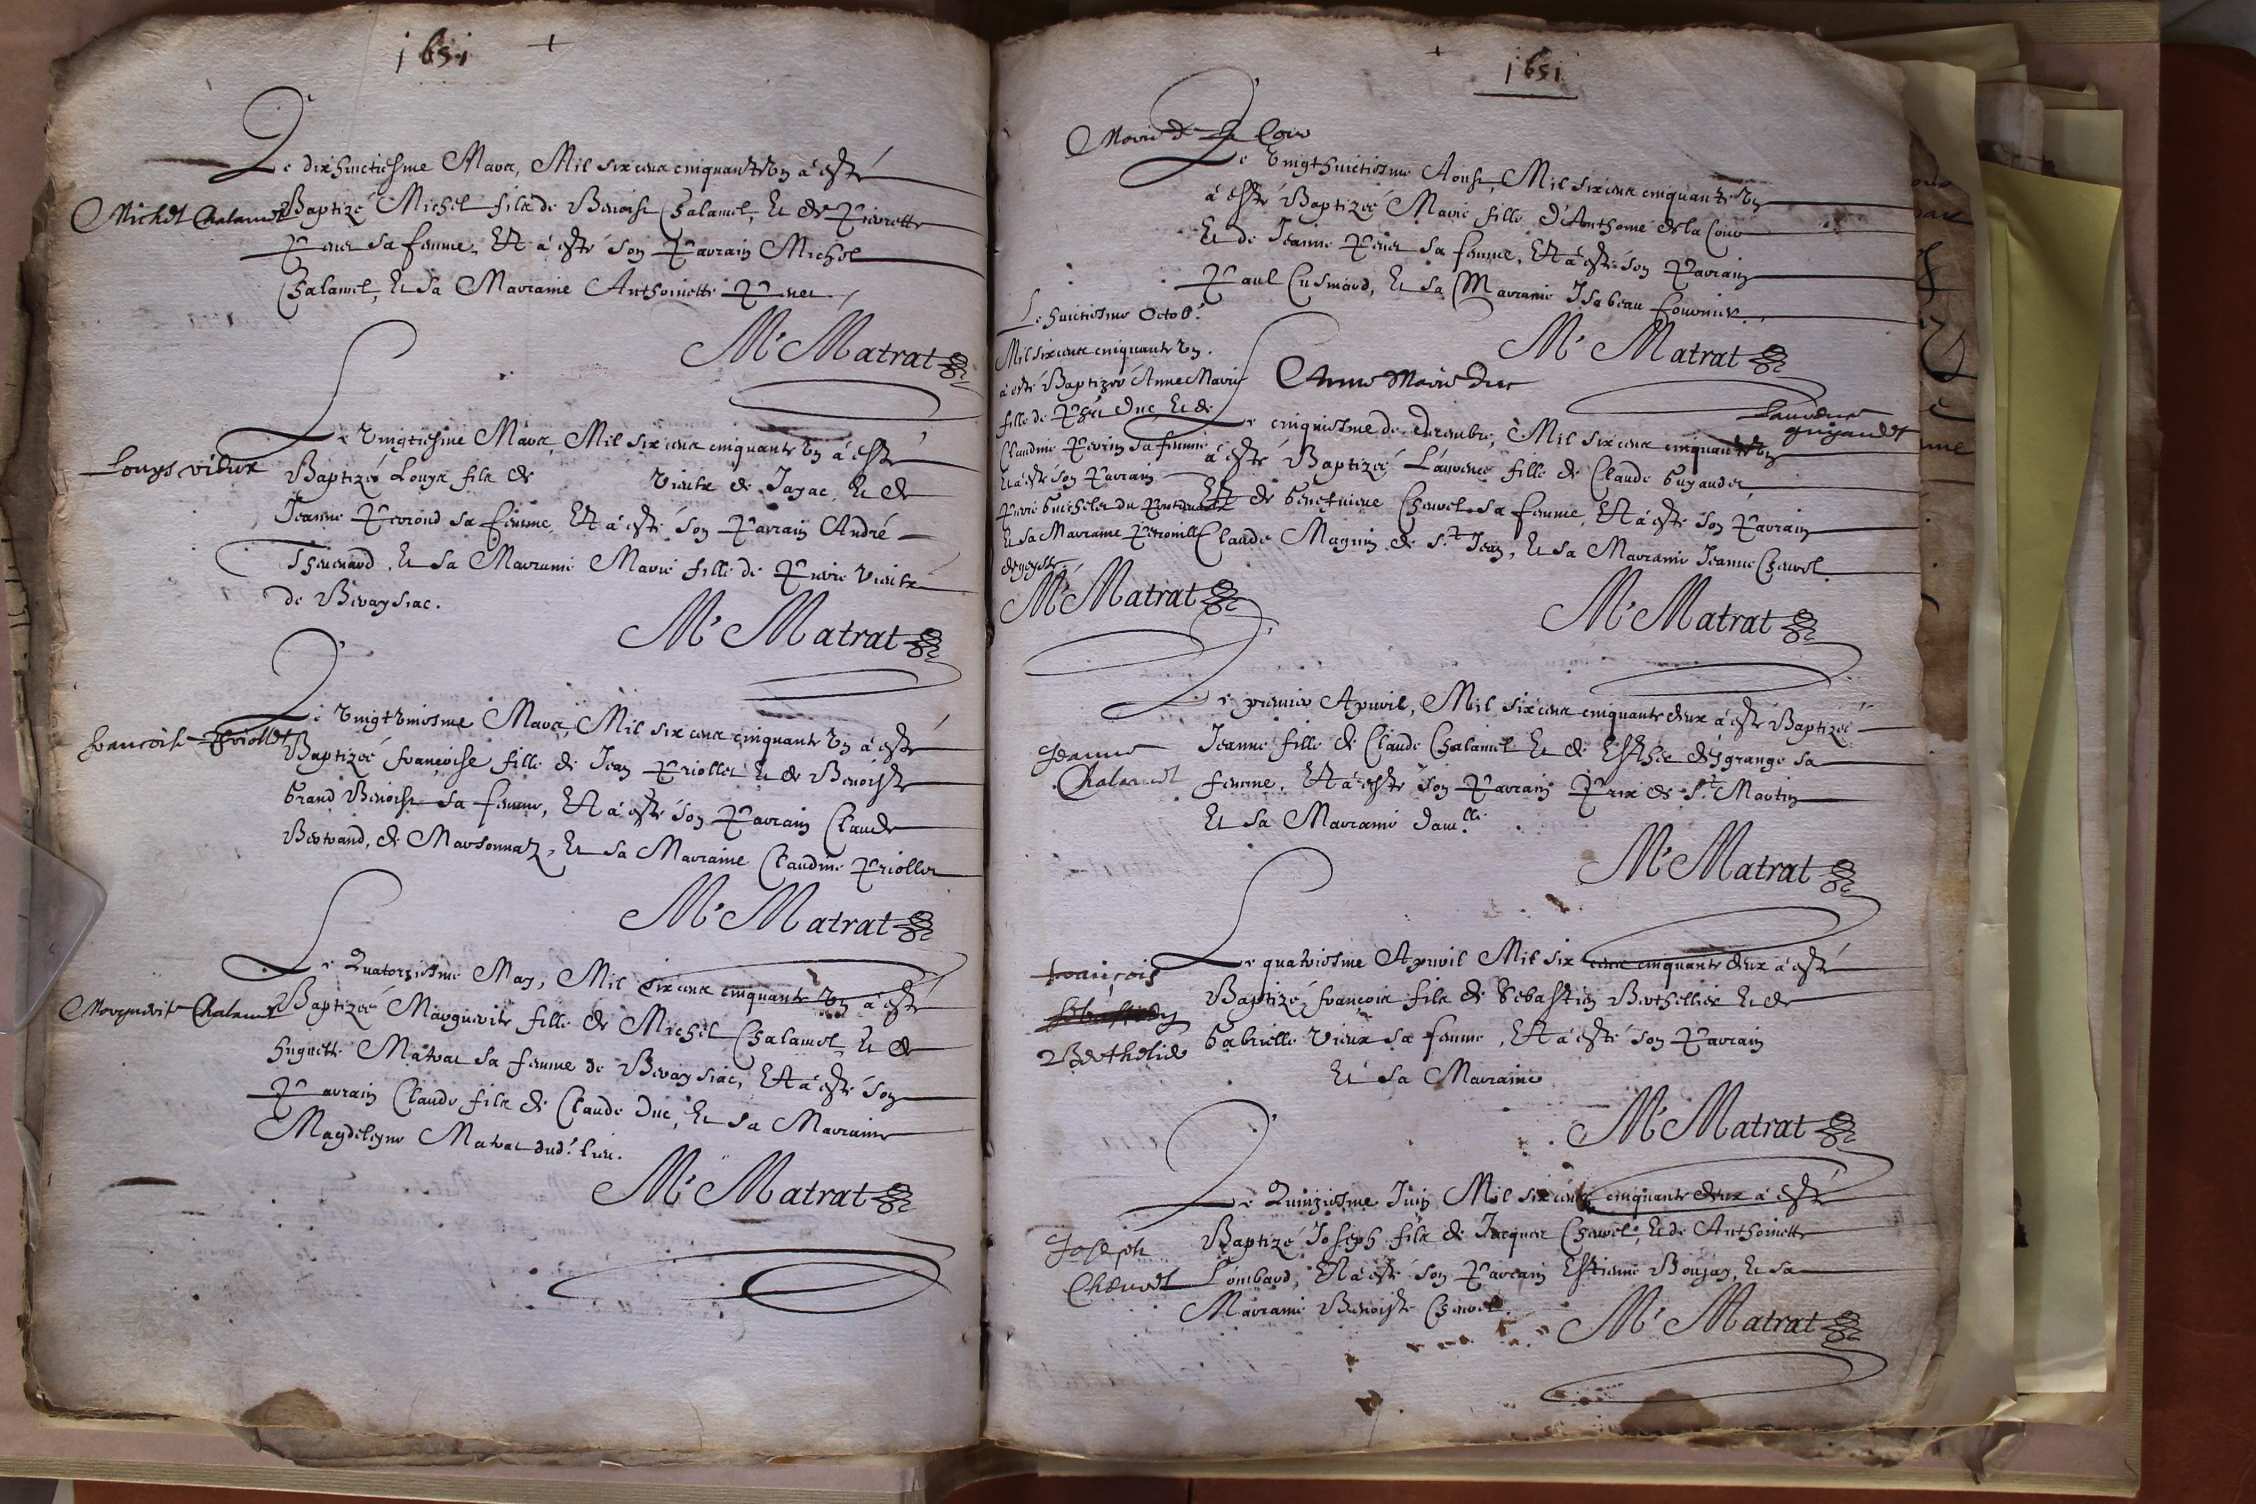 1651
Le dixhuictiesme Mars, Mil six cens cinquante Vn à esté
Michel Chalamel
Baptizé Michel fils de Benoist Chalamel, Et de Pierrette
sa femme, Et à esté son Parrain Michel
Chalamel, Et sa Marraine Anthoinette
Mr Matrat
Le Vingtiesme Mars, Mil six cens cinquante Vn à esté
Louys vieux
Baptizé Louys fils de Vieilx de Jayac, Et de
Jeanne Perrond sa femme, Et à esté son Parrain André
Thevenard, Et sa Marraine Marie fille de Pierre Vieilx
de Bevaysiac.
Mr Matrat
Le Vingt Vniesme Mars, Mil six cens cinquante Vn à esté
francoise Priollet
Baptizée françoise fille de Jean Priollet Et de Benoiste
Grand Benoist sa femme, Et à esté son Parrain Claude
Bertrand, de Marsonnaz, Et sa Marraine Claudine Priollet
Mr Matrat
Le Quatorziesme May, Mil six cens cinquante Vn à esté
Marguerite Chalamel
Baptizée Marguerite fille de Michel Chalamel, Et de
huguette Matrat sa femme de Bevaysiac, Et à esté son
Parrain Claude fils de Claude Duc, Et sa Marraine
Magdeleyne Matrat dud. lieu.
Mr Matrat
1651
Marie de la Cour
Le Vingthuictiesme Aoust, Mil six cens cinquante Vn
à esté Baptizée Marie fille d'Anthoine de la Cour
Et de Jeanne sa femme, Et à esté son Parrain
Paul Cusinard, Et sa Marraine Isabeau fournier.
Mr Matrat
Le huictiesme Octob.
Mil six cens cinquante Vn.
à esté Baptizée Anne Marie
fille de Duc Et de
Claudine Perrin sa femme
Et à esté son Parrain
Pierre Guichelet du
Et sa Marraine
Mr Matrat
Anne Marie Duc
Laurence
guyaudet
Le cinquiesme de Decembre, Mil six cens cinquante Vn
à esté Baptizée Laurence fille de Claude Guyaudet,
Et de Genefvieve Chevrel sa femme, Et à esté son Parrain
Claude Magnin de St Jean, Et sa Marraine Jeanne Chevrel.
Mr Matrat
Le premier Apvril, Mil six cens cinquante deux à esté Baptizée
Jeanne
Chalamel
Jeanne fille de Claude Chalamel Et de Esther desgrange sa
femme, Et à esté son Parrain Prix de St Martin
Et sa Marraine dam.lle
Mr Matrat
Le quatriesme Apvril Mil six cens cinquante deux à esté
françois
Berthelier
Baptizé, françois fils de Sebastien Berthellier Et de
Gabrielle Vieux sa femme, Et à esté son Parrain
Et sa Marraine
Mr Matrat
Le Quinziesme Juin Mil six cens cinquante deux à esté
Joseph
Chevrel
Baptizé Joseph fils de Jacques Chevrel, Et de Anthoinette
Lombard, Et à esté son Parrain Estienne Boujay, Et sa
Marraine Benoiste Chevrel.
Mr Matrat